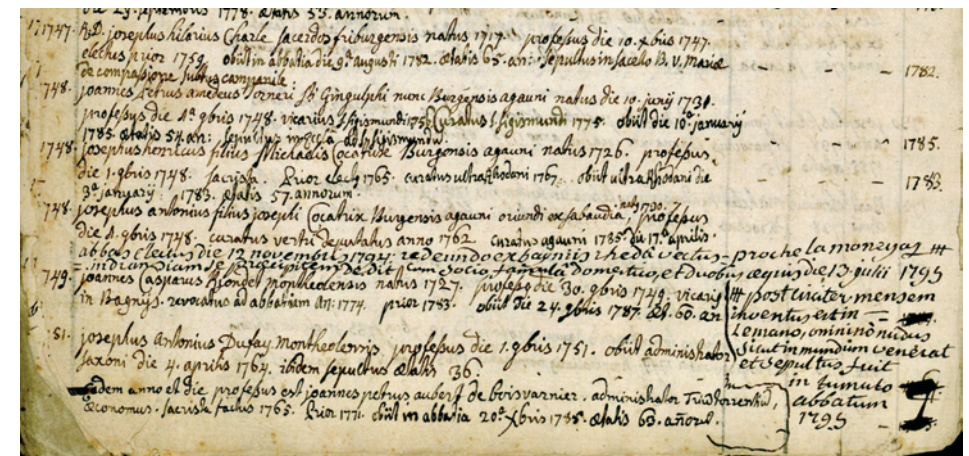 die 29. 1778. ætatis 55. annorum.
1747. R.D. josephus hilarius Charle sacerdos friburgensis natus 1717. professus die 10. Xbris 1747.
electus prior 1759. obiit in abbatia die 9ª augusti 1782. ætatis 65. an: sepultus in sacello B. V. Mariæ
de compassione subtus campanile. - - - 1782.
748. joannes petrus amedeus Gingulphi nunc Burgensis agauni natus die 10. junij 1731.
professus die 1ª 9bris 1748. vicarius S. sigismundi Curatus S. sigismundi 1775. obiit die 10ª january
1785. ætatis 54. an: sepultus in ad S. sigismundum. - - - 1785.
1748. josephus henricus filius Michaelis Cocatrix Burgensis agauni natus 1726. professus
die 1. 9bris 1748. sacrista. Prior elect9 1765. curatus ultra Rhodani 1767. obiit ultra Rhodani die
3ª january 1783. ætatis 57. annorum. - - 1783.
748. josephus antonius filius josephi Cocatrix Burgensis agauni oriundi ex sabaudia, nat9 1720. professus
die 1. 9bris 1748. curatus deputatus anno 1762 curatus agauni 1785. die 17ª aprilis.
abbas electus die 12 novembris 1794. redeundo ex bagniis rheda vectus = proche la moneyaz #
= in dranciam se præcipitem dedit cum socio, famula domestico, et duobus æquis die 13 julii 1795
749. joannes Casparus Biondet montheolensis natus 1727. profess9 die 30. 9bris 1749. vicari9
in Bagnijs. revocatus ad abbatiam an: 1774. prior 1783. obiit die 24. 9bris 1787. æt. 60. an
# post circiter mensem
inventus est in
Lemano, omninò nudus
sicut in mundum venerat
et sepultus fuit
in tumulo
abbatum
1795
51. josephus antonius Dufay Montheolensis professus die 1. 9bris 1751. obiit administrator
saxoni die 4. aprilis 1764. ibidem sepultus ætatis 36.
eadem anno et die professus est joannes petrus aubert de boisvarnier. administrator
œconomus. sacrista factus 1765. Prior 1771. obiit in abbatia 20ª Xbris 1785. ætatis 63. añorū.